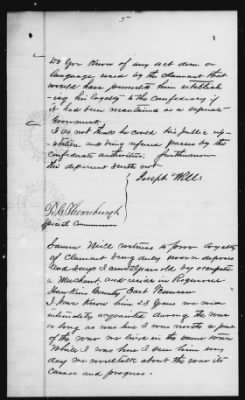 5
Do you know of any act done or
language used by the claimant that
would have prevented him establish
-ing his loyalty to the Confederacy if
it had been maintained as a separate
Government,
I do not think he could his public rep
utation and being refused passes by the
Confederate authorities, furthermore
this deponent saith not
Joseph Mills
Special Commissioner
Samuel Neill witness to prove loyalty
of claimant being duly sworn deposes
and says I am years old by occupation
a Merchant and reside in Rogersville
Hawkins County, East Tennessee
I have known him 28 years was
intimately acquainted during the war
as long as was here I was north a part
of the war we lived in the same town
While I was here I seen him every
day we would talk about the war its
causes and progress.